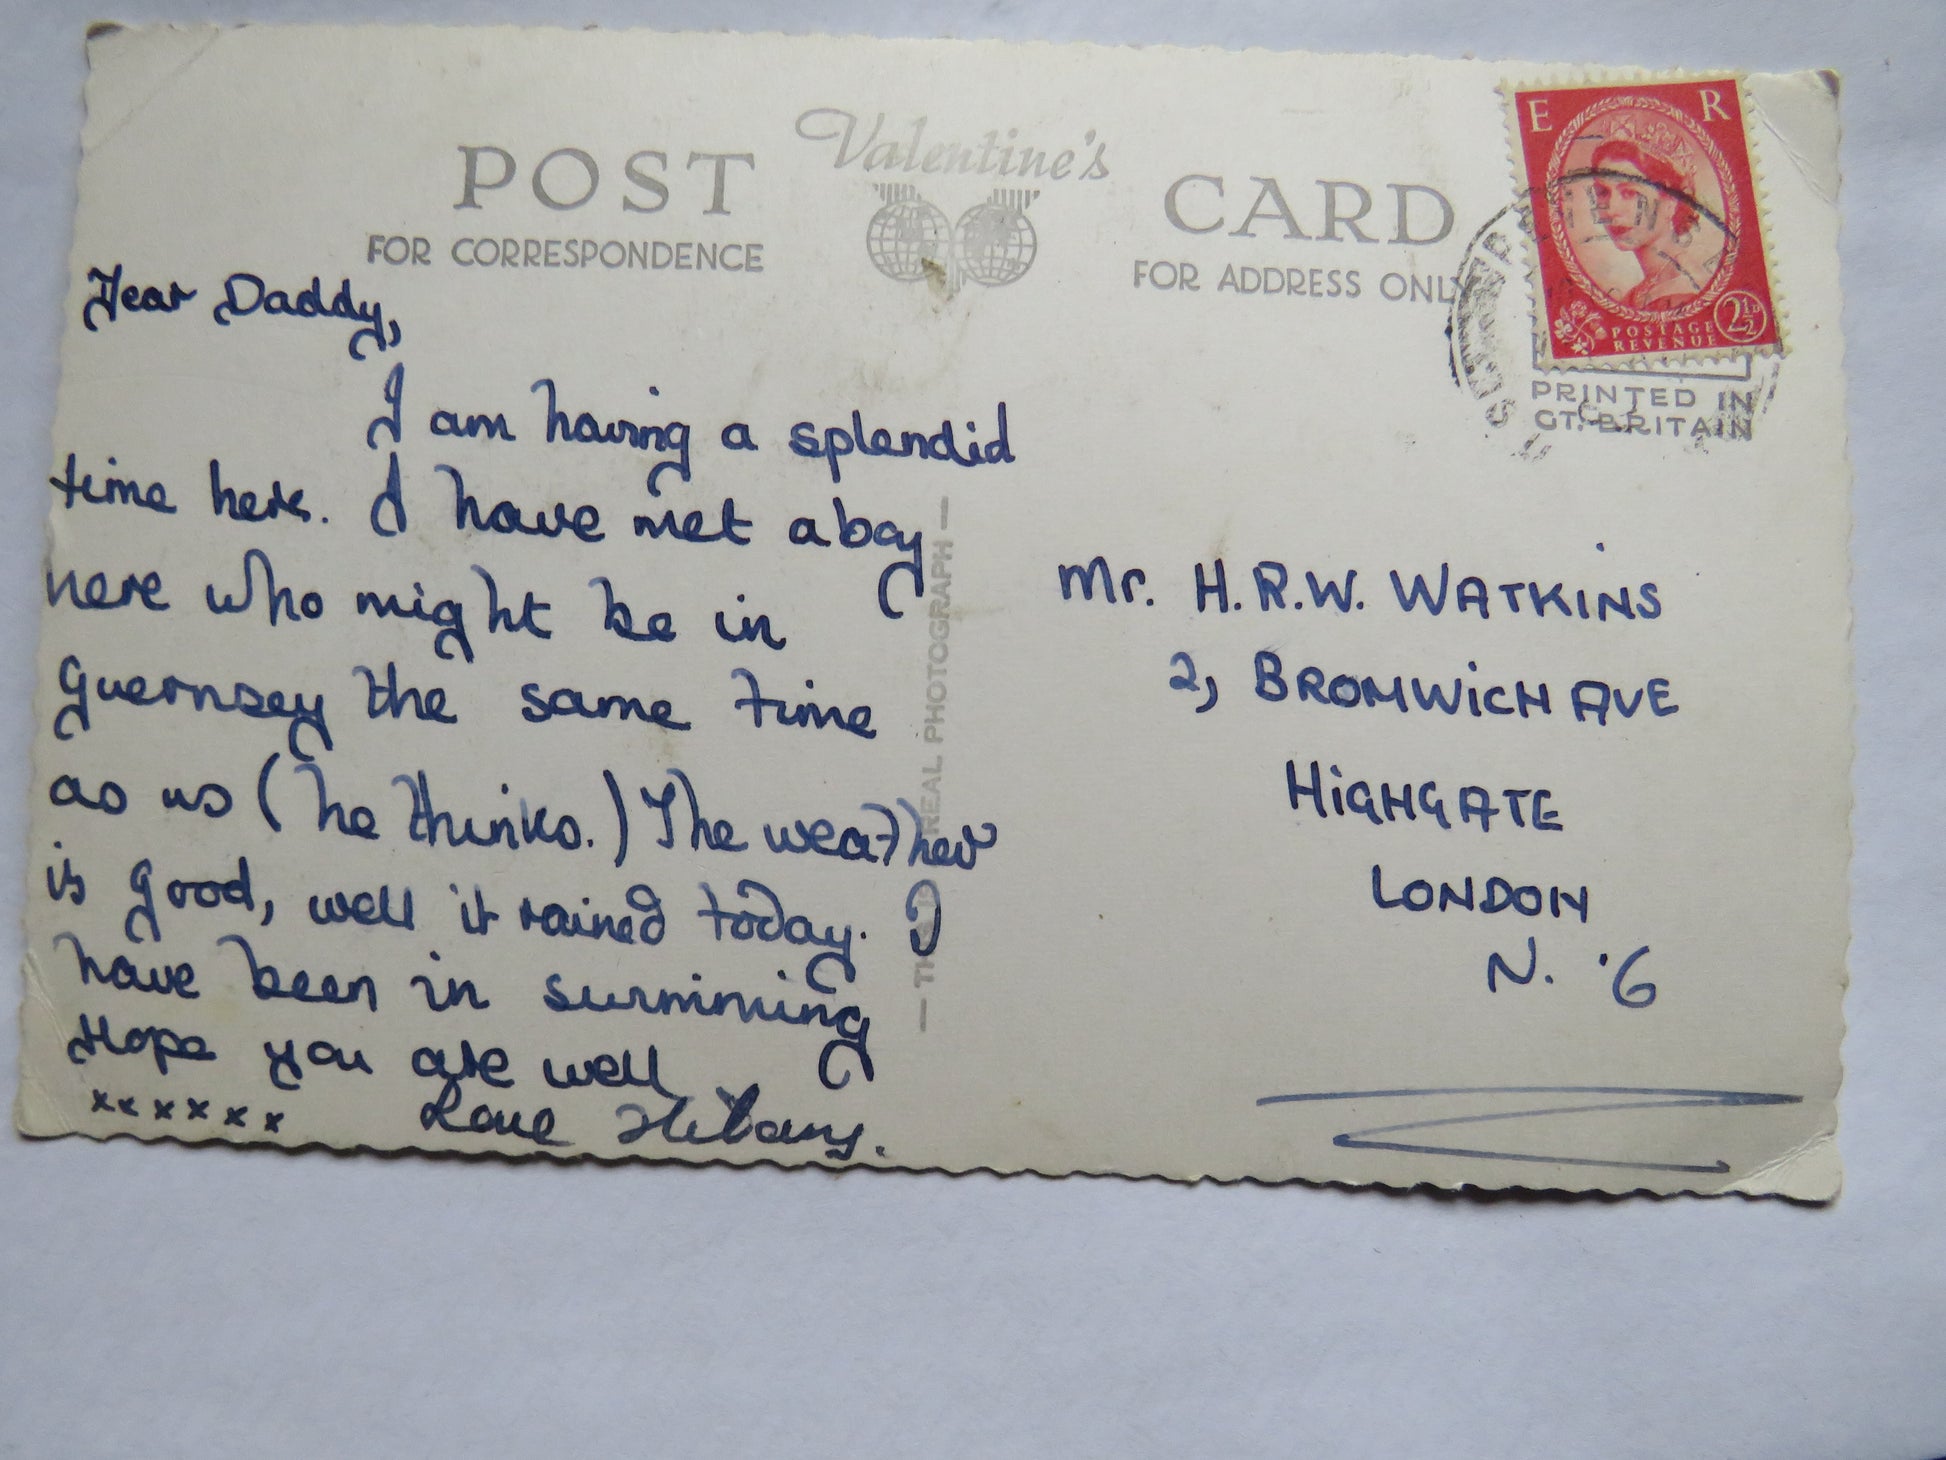 Valentine's
POST CARD
FOR CORRESPONDENCE
FOR ADDRESS ONLY
E R
POSTAGE
REVENUE
2½D
PRINTED IN
GT. BRITAIN
Dear Daddy,
I am having a splendid
time here. I have met a boy
here who might be in
Guernsey the same time
as us (he thinks.) The weather
is good, well it rained today. I
have been in summing
Hope you are well
xxxxxx Love Hilary.
THIS IS A REAL PHOTOGRAPH
Mr. H.R.W. WATKINS
2, BROMWICH AVE
HIGHGATE
LONDON
N. 6